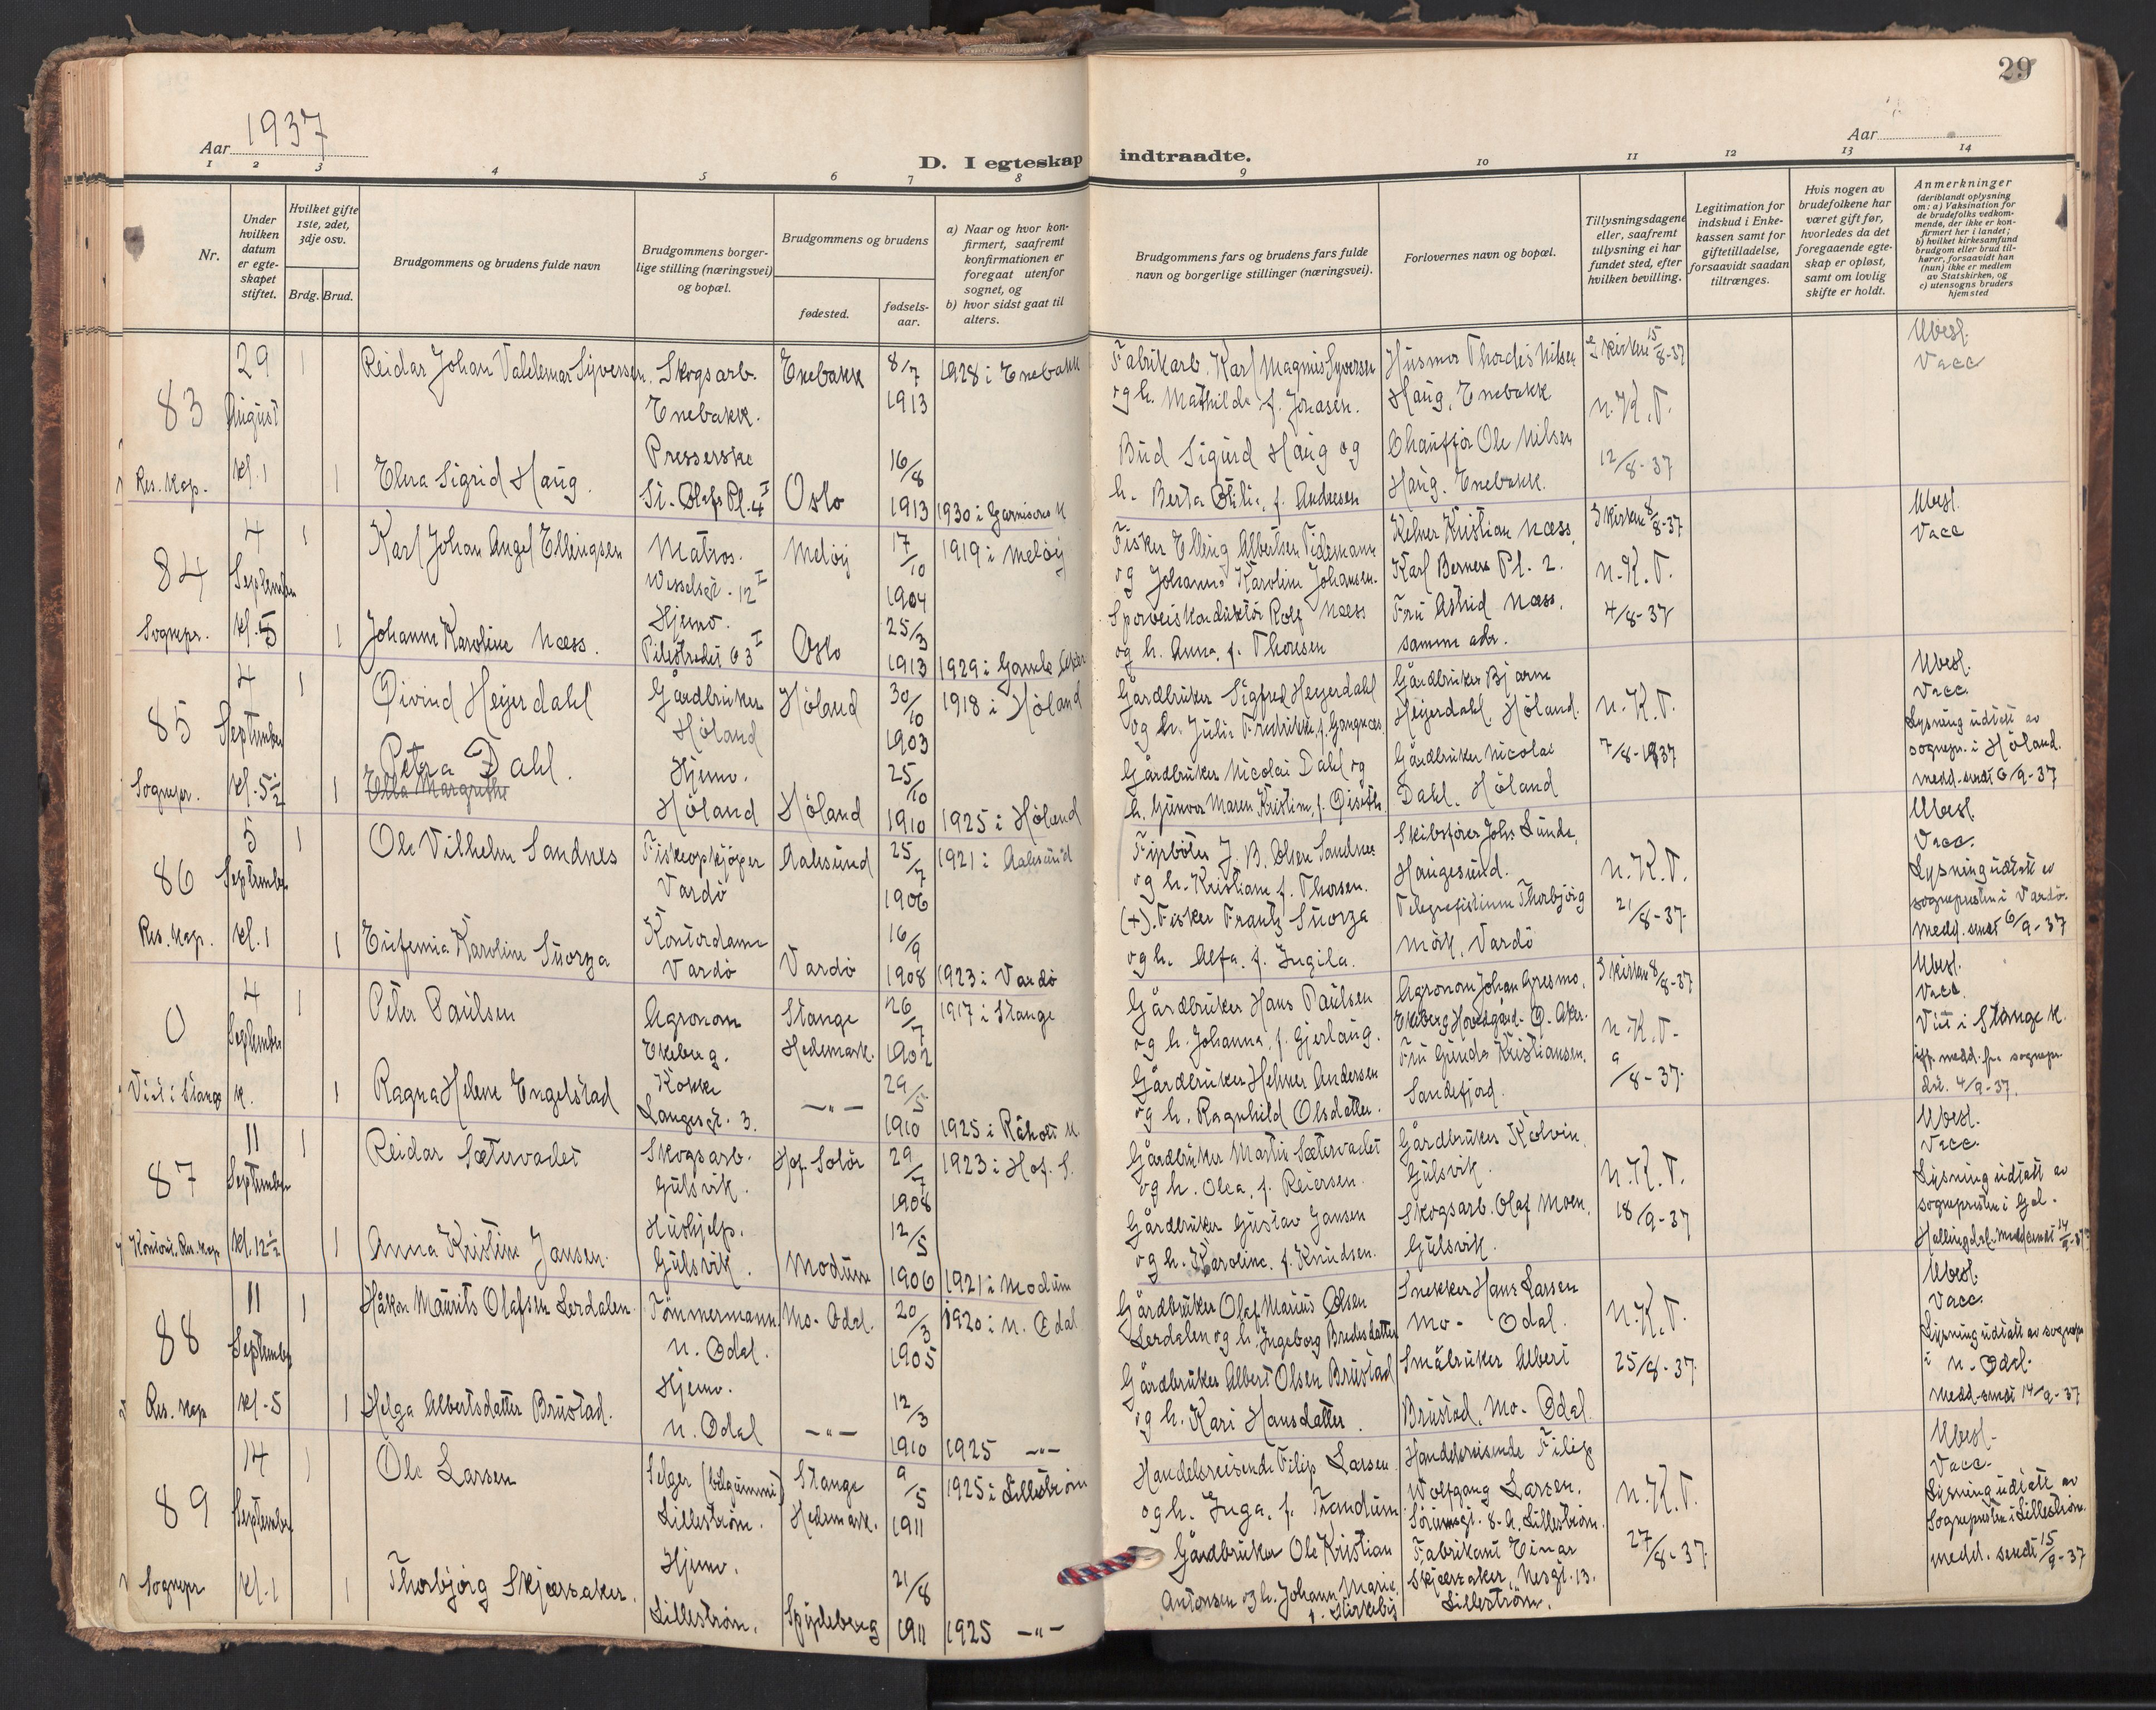 29
Aar 1937
Aar
D. I egteskap indtraadte.
1 2 3 4 5 6 7 8 9 10 11 12 13 14
Nr.
Under
hvilken
datum
er egte-
skapet
stiftet.
Hvilket gifte
1ste, 2det,
3dje osv.
Brdg. Brud.
Brudgommens og brudens fulde navn
Brudgommens borger-
lige stilling (næringsvei)
og bopæl.
Brudgommens og brudens
fødested.
fødsels-
aar.
a) Naar og hvor kon-
firmert, saafremt
konfirmationen er
foregaat utenfor
sognet, og
b) hvor sidst gaat til
alters.
Brudgommens fars og brudens fars fulde
navn og borgerlige stillinger (næringsvei).
Forlovernes navn og bopæl.
Tillysningsdagene
eller, saafremt
tillysning ei har
fundet sted, efter
hvilken bevilling.
Legitimation for
indskud i Enke-
kassen samt for
giftetilladelse,
forsaavidt saadan
tiltrænges.
Hvis nogen av
brudefolkene har
været gift før,
hvorledes da det
foregaaende egte-
skap er opløst,
samt om lovlig
skifte er holdt.
Anmerkninger
(deriblandt oplysning
om: a) Vaksination for
de brudefolks vedkom-
mende, der ikke er kon-
firmert her i landet;
b) hvilket kirkesamfund
brudgom eller brud til-
hører, forsaavidt han
(hun) ikke er medlem
av Statskirken, og
c) utensogns bruders
hjemsted
83
Res. Kap.
29
August
Kl. 1
1
1
Reidar Johan Valdemar Syversen.
Elna Sigrid Haug.
Skogsarb.
Enebakk.
Presserske
St. Olafs Pl. 4 I
Enebakk
Oslo
8/7
1913
16/8
1913
1928 i Enebakk
1930 i Garnisons K
Fabrikarb. Karl Magnus Syversen
og h. Mathilde f. Jonasen.
Bud Sigurd Haug og
h. Berta Otilie, f. Andresen
Husmor Thordis Nilsen
Haug, Enebakk
Chauffør Ole Nilsen
Haug. Enebakk.
I kirken 15/8-37
N.K.T.
12/8-37
Ubesl.
Vacc
84
Sognepr.
4
September
Kl. 5
1
1
Karl Johan Angel Ellingsen
Johanne Karoline Næss.
Matros.
Wesselsgt. 12 I
Hjemv.
Pilestredet 63 I
Meløy
Oslo
17/10
1904
25/3
1913
1919 i Meløy
1929 i Gamle Aker
Fisker Elling Albertsen Tidemann
og Johanne Karoline Johansen.
Sporveiskonduktør Rolf Næss
og h. Anna, f. Thoresen
Kelner Kristian Næss,
Karl Berners Pl. 2.
Fru Astrid Næss,
samme adr.
I kirken 8/8-37
N.K.T.
4/8-37
Ubesl.
Vacc
85
Sognepr.
4
September
Kl. 5 1/2
1
1
Øivind Heyerdahl
Petra Dahl.
Ella Margrethe
Gårdbruker
Høland
Hjemv.
Høland
Høland
Høland
30/10
1903
25/10
1910
1918 i Høland
1925 i Høland
Gårdbruker Sigfred Heyerdahl
og h. Julie Fredrikke, f. Gangnæs.
Gårdbruker Nicolai Dahl og
h. Gunvor Maren Kristine, f. Øiseth
Gårdbruker Bjarne
Heyerdahl, Høland.
Gårdbruker Nicolai
Dahl, Høland
N.K.T.
7/8-1937
Ubesl.
Vacc.
Lysning udtatt av
sognepr. i Høland.
medd. sendt 6/9-37
86
Res. Kap.
5
September
Kl. 1
1
1
Ole Vilhelm Sandnes
Eufemia Karoline Suorza
Fiskeopkjøper
Vardø
Kontordame
Vardø
Aalesund
Vardø
25/7
1906
16/9
1908
1921 i Aalesund
1923 i Vardø
J. B. Olsen Sandnes
og h. Kristiane f. Thorsen.
(+). Fisker Frantz Suorza
og h. Alfa, f. Ingila.
Skibsfører Johs Lunde,
Haugesund.
Telegrafistinne Thorbjørg
Mørk, Vardø
N.K.T.
21/8-37.
Ubesl.
Vacc.
Lysning udtatt av
sognepresten i Vardø.
medd. sendt 6/9-37
0
Viet i Stange K.
4
September
1
1
Peter Paulsen
Ragna Helene Engelstad
Agronom
Ekeberg.
Kokke
Langesgt. 3.
Stange
Hedemark.
—„—
26/7
1902
29/5
1910
1917 i Stange
1925 i Råholt K
Gårdbruker Hans Paulsen
og h. Johanna, f. Gjerlaug.
Gårdbruker Helmer Andersen
og h. Ragnhild Olsdatter.
Agronom Johan Gresmo,
Ekeberg Hovedgård. Ø. Aker.
Fru Gunda Kristiansen,
Sandefjord.
I kirken 8/8-37
N.K.T.
9/8-37.
Ubesl.
Vacc.
Viet i Stange K.
iflg. medd. fra sognepr.
dit. 4/9-37.
87
Kontori. Res. Kap.
11
September
Kl. 12 1/2
1
1
Reidar Sætervadet
Anna Kristine Jansen.
Skogsarb.
Gulsvik.
Hushjelp.
Gulsvik.
Hof. Solør
Modum
29/7
1908
12/5
1906
1923 i Hof. S.
1921 i Modum
Gårdbruker Martin Sætervadet
og h. Olea, f. Reiersen.
Gårdbruker Gustav Jansen
og h. Karoline, f. Knudsen.
Gårdbruker Kolvin,
Gulsvik.
Skogsarb. Olaf Moen,
Gulsvik.
N.K.T.
18/9-37
Ubesl.
Vacc.
Lysning udtatt av
sognepresten i Gol.
Hallingdal. Medd. sendt 14/9-37
88
Res. Kap
11
September
Kl. 5
1
1
Håkon Maurits Olafsen Lerdalen.
Helga Albertsdatter Brustad.
Tømmermann.
N. Odal.
Hjemv.
N. Odal
Mo. Odal.
—„—
20/3
1905
12/3
1910
1920 i N. Odal
1925 —„—
Gårdbruker Olaf Marius Olsen
Lerdalen og h. Ingeborg Bredesdatter
Gårdbruker Albert Olsen Brustad
og h. Kari Hansdatter.
Snekker Hans Larsen
Mo- Odal.
Småbruker Albert
Brustad, Mo. Odal.
N.K.T.
25/8-37.
Ubesl.
Vacc.
Lysning udtatt av sognepr
i N. Odal.
Medd. sendt 14/9-37
89
Sognepr
14
September
Kl. 1
1
1
Ole Larsen
Thorbjørg Skjærsaker.
Selger (bilgummi)
Lillestrøm.
Hjemv.
Lillestrøm.
Stange
Hedemark.
Spydeberg
9/5
1911
21/8
1911
1925 i Lillestrøm
1925 —„—
Handelsreisende Filip Larsen
og h. Inga, f. Trandum
Gårdbruker Ole Kristian
Antonsen og h. Johann. Marie,
Handelsreisende Filip
Wolfgang Larsen,
Sørumsgt. 8. a. Lillestrøm.
Fabrikant Einar
Skjærsaker, Nesgt. 13.
Lillestrøm.
N.K.T.
27/8-37.
Ubesl.
Vacc.
Lysning udtatt av
Sognepresten i Lillestrøm.
medd. sendt 15/9-37